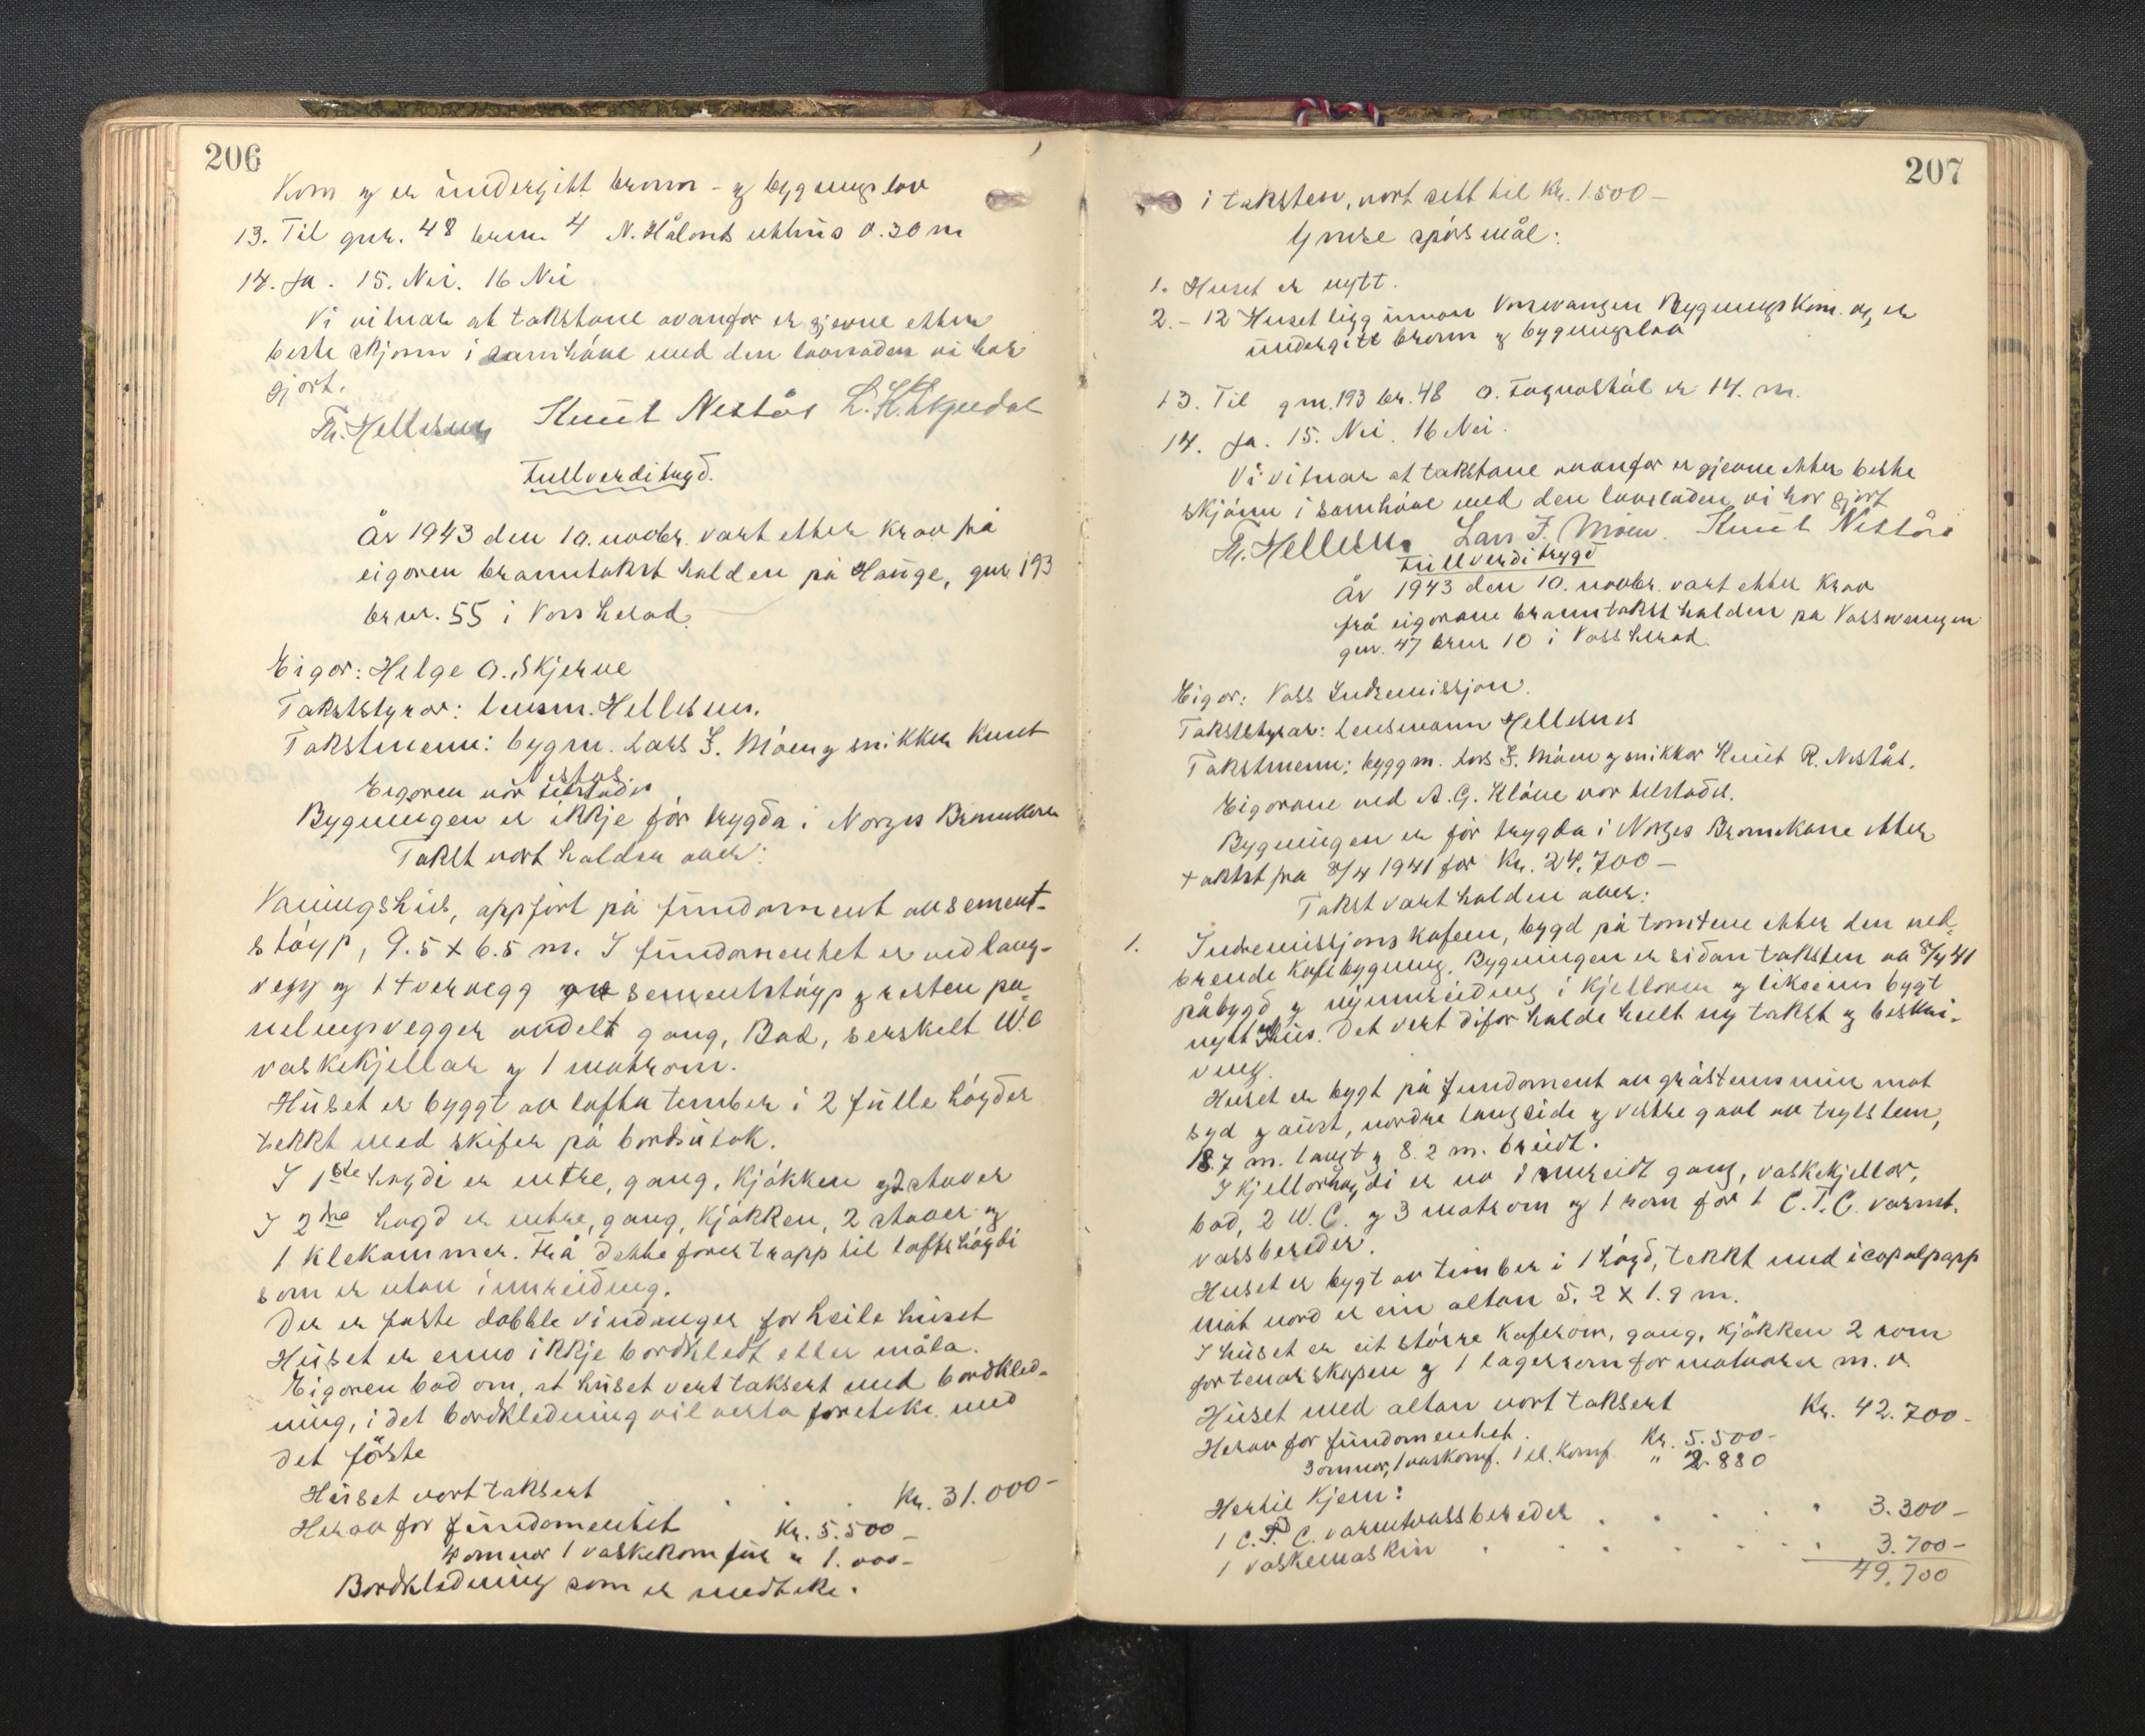 206
Kom og er undergitt brann - og bygningslov
13. Til gnr. 48 brnr. 4 N. Hålands uthus 0.30 m
14. Ja. 15. Nei. 16 Nei
Vi vitnar at takstane ovanfor er gjevne etter
beste skjønn i samhøve med den lovnaden vi har
gjort.
Th. Hellesnes Knut Nestås
Fullverditrygd.
År 1943 den 10. novbr. vart etter krav frå
eigaren branntakst halden på Hauge, gnr 193
brnr. 55 i Voss herad.
Eigar: Helge O. Skjerve
Takststyrar: lensm. Hellesnes.
Takstmenn: bygm. Lars J. Møen og snikker Knut
Nestås.
Eigaren var tilstades
Bygningen er ikkje før trygda i Norges Brannkasse
Takst vart halden over:
Våningshus, oppført på fundament av sement-
støyp, 9.5 x 6.5 m. I fundamentet er ved lang-
vegg og 1 tvervegg av sementstøyp og resten pa-
nelingsvegger avdelt gang, Bad, serskilt W.C
vaskekjellar og 1 matrom.
Huset er byggt av lafta tember i 2 fulle høgder
tekkt med skifer på bordsutak.
I 1ste høgdi er entre, gang, kjøkken og 2 stover
I 2dra høgd er entre, gang, kjøkken, 2 stover og
1 klekammer. Frå dette fører trapp til loftshøgdi
som er utan innreiding.
Der er faste dobble vindauger for heile huset
Huset er enno ikkje bordkledt eller måla.
Eigaren bad om, at huset vert taksert med bordkled-
ning, i det bordkledning vil verta foreteke med
det første
Huset vart taksert . . . Kr. 31.000-
Herav for fundamentet Kr. 5.500-
4 omnar 1 vaskekomfur " 1.000-
Bordkledning som er medteke.
207
i taksten, vart sett til Kr. 1.500-
Ymse spørsmål:
1. Huset er nytt.
2. - 12 Huset ligg innan Vossevangen Bygningskom. og er
undergitt brann og bygningslov
13. Til gnr. 193 br. 48 O. Fagnastøl er 14. m.
14. Ja. 15. Nei. 16 Nei.
Vi vitnar at takstane ovanfor er gjevne etter beste
skjønn i samhøve med den lovnaden vi har gjort
Th. Hellesnes Lars J. Møen. Knut Nestås
Fullverditrygd
År 1943 den 10. novbr. vart etter krav
frå eigarane branntakst halden på Vossevangen
gnr. 47 brnr 10 i Voss herad.
Eigar: Voss Indremissjon.
Takststyrar: Lensmann Hellesnes
Takstmenn: byggm. Lars J. Møen og snikkar Knut R. Nestås.
Eigarane ved A. G. Kløve var tilstades.
Bygningen er før trygda i Norges Brannkasse etter
takst fra 8/4 1941 for Kr. 24.700-
Takst vart halden over:
1. Indremissjons kafeen, bygd på tomtene etter den ned-
brende kafebygning. Bygningen er sidan taksten av 8/4 41
påbygd og nyinnreiding i kjellaren og likseins bygt
nytt hus. Det vert difor halde heilt ny takst og beskri-
ving.
Huset er bygt på fundament av gråsteinsmur mot
syd og aust, nordre langside og vestre gavl av teglstein,
18.7 m. langt og 8.2 m. breidt.
I kjellarhøgdi er no innreidt gang, vaskekjellar,
bad, 2 W.C. og 3 matrom og 1 rom for 1 C.T.C. varmt-
vassbereder.
Huset er bygt av timber i 1 høgd, tekkt med icopalpapp
mot nord er ein altan 5.2 x 1.9 m.
I huset er eit større kaferom, gang, kjøkken 2 rom
for tenarskapen og 1 lagerrom for matvarer m. v.
Huset med altan vart taksert Kr. 42.700-
Herav for fundamentet. Kr. 5.500-
3 omnar, 1 vaskomf. 1 el. komf. " 2.880
Hertil kjem:
1 C.T.C. varmtvassbereder . . . . 3.300-
1 vaskemaskin . . . . . . 3.700-
49.700